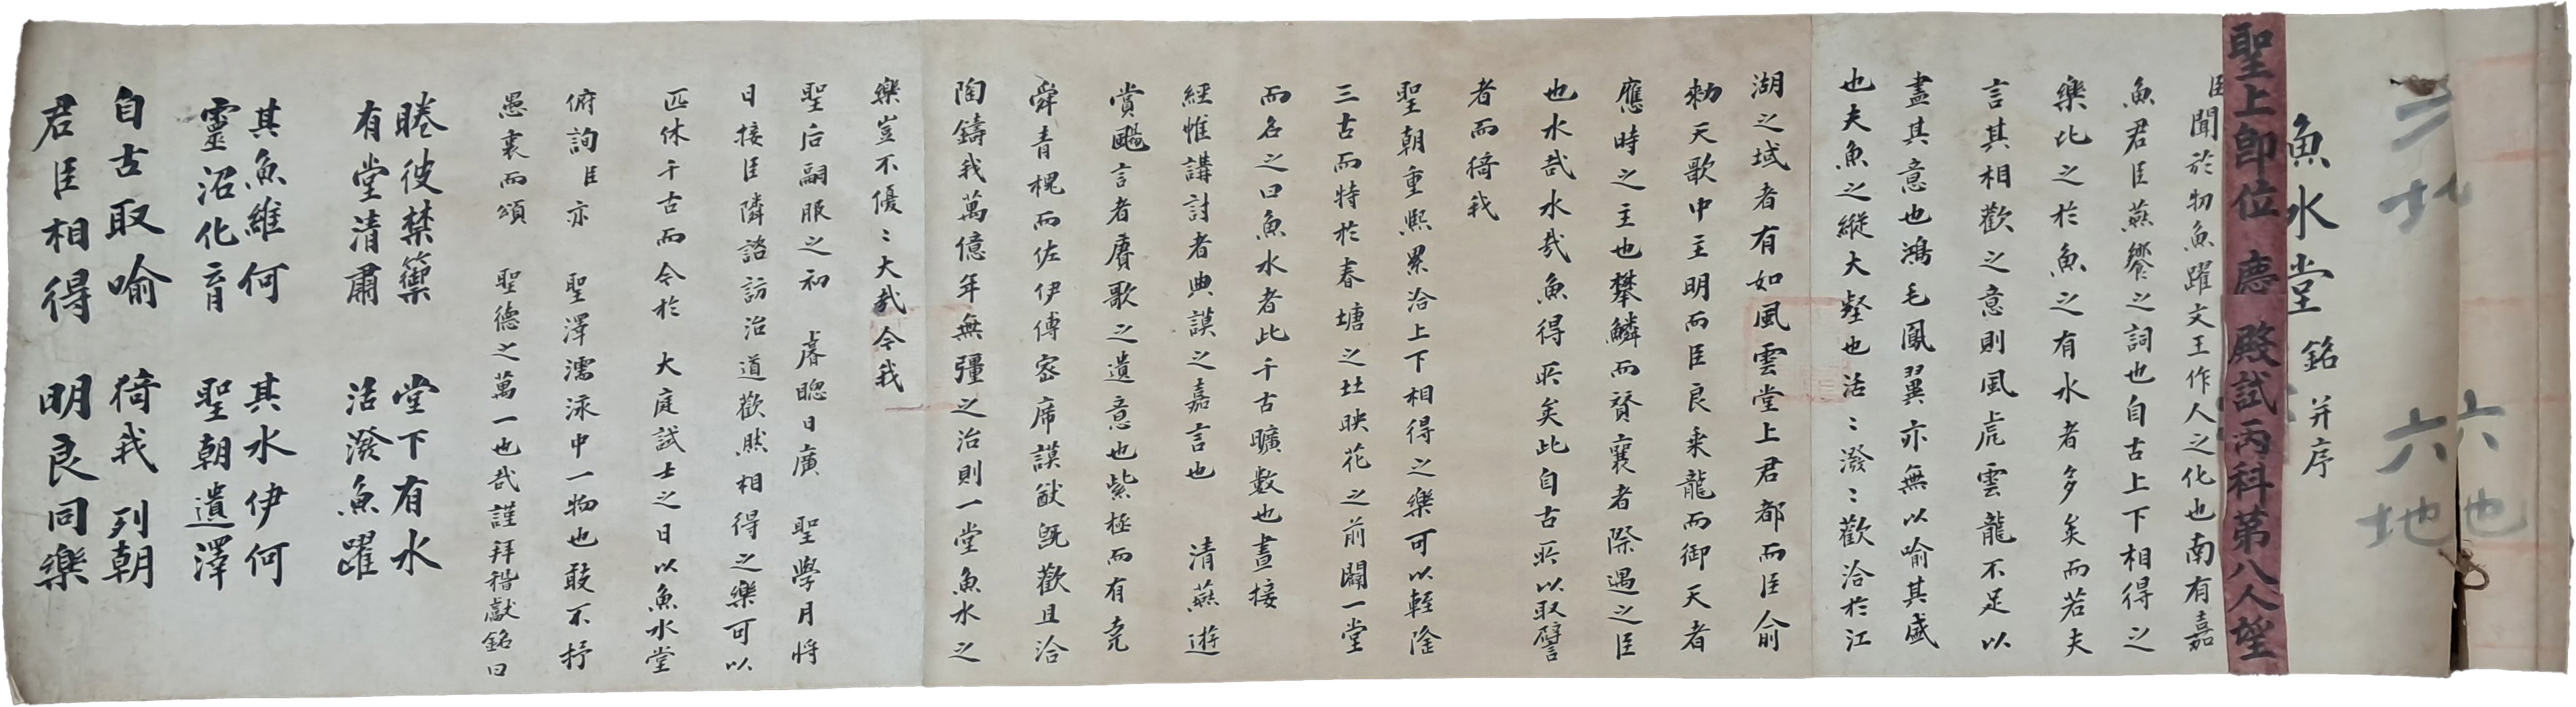 二 北
六 地
魚水堂 銘 并序
聖上卽位 慶 殿試丙科第八人望
臣聞於物魚躍文王作人之化也南有嘉
魚君臣燕饗之詞也自古上下相得之
樂比之於魚之有水者多矣而若夫
言其相歡之意則風虎雲龍不足以
盡其意也鴻毛鳳翼亦無以喻其盛
也夫魚之縱大壑也活〻潑〻歡洽於江
湖之域者有如風雲堂上君都而臣俞
勑天歌中主明而臣良乘龍而御天者
應時之主也攀鱗而贊襄者際遇之臣
也水哉水哉魚得所矣此自古所以取譬
者而猗我
聖朝重熙累洽上下相得之樂可以軽隆
三古而特於春塘之上映花之前闢一堂
而名之曰魚水者此千古曠數也晝接
經帷講討者典謨之嘉言也 清燕遊
賞颺言者賡歌之遺意也紫極而有堯
舜青槐而佐伊傅密席謨猷旣歡且洽
陶鑄我萬億年無彊之治則一堂魚水之
樂豈不優〻大哉今我
聖后嗣服之初 睿聰日廣 聖學月將
日接臣隣諮訪治道歡然相得之樂可以
匹休千古而今於 大庭試士之日以魚水堂
俯詢臣亦 聖澤濡泳中一物也敢不抒
愚衷而頌 聖德之萬一也哉謹拜稽獻銘曰
睠彼禁籞 堂下有水
有堂清肅 活潑魚躍
其魚維何 其水伊何
靈沼化育 聖朝遺澤
自古取喻 猗我列朝
君臣相得 明良同樂